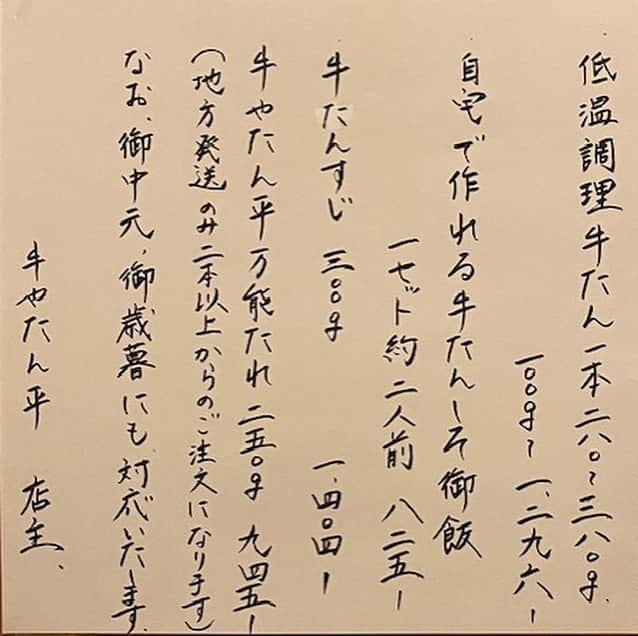 低温調理牛たん一本二八〇〜三八〇g.
一〇〇g〜一、二九六ー
自宅で作れる牛たんしそ御飯
一セット約二人前 八二五ー
牛たんすじ 三〇〇g 一、四〇四ー
牛やたん平万能たれ 二五〇g 九四五ー
(地方発送のみ二本以上からのご注文になります)
なお、御中元、御歳暮にも対応いたします.
牛やたん平 店主、